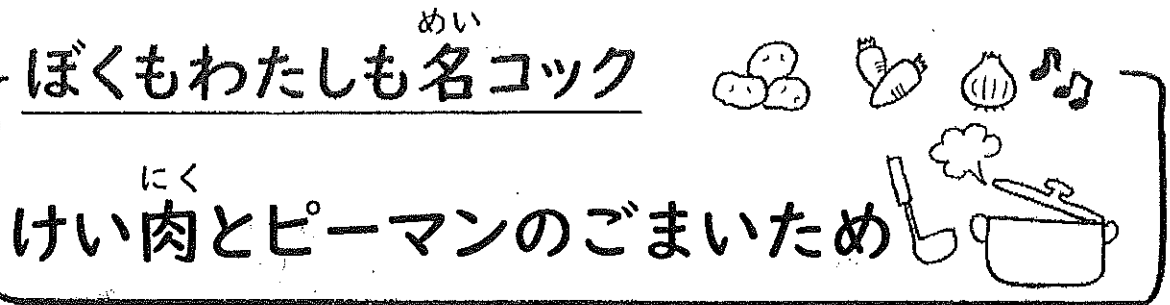 ぼくもわたしも名コック
けい肉とピーマンのごまいため